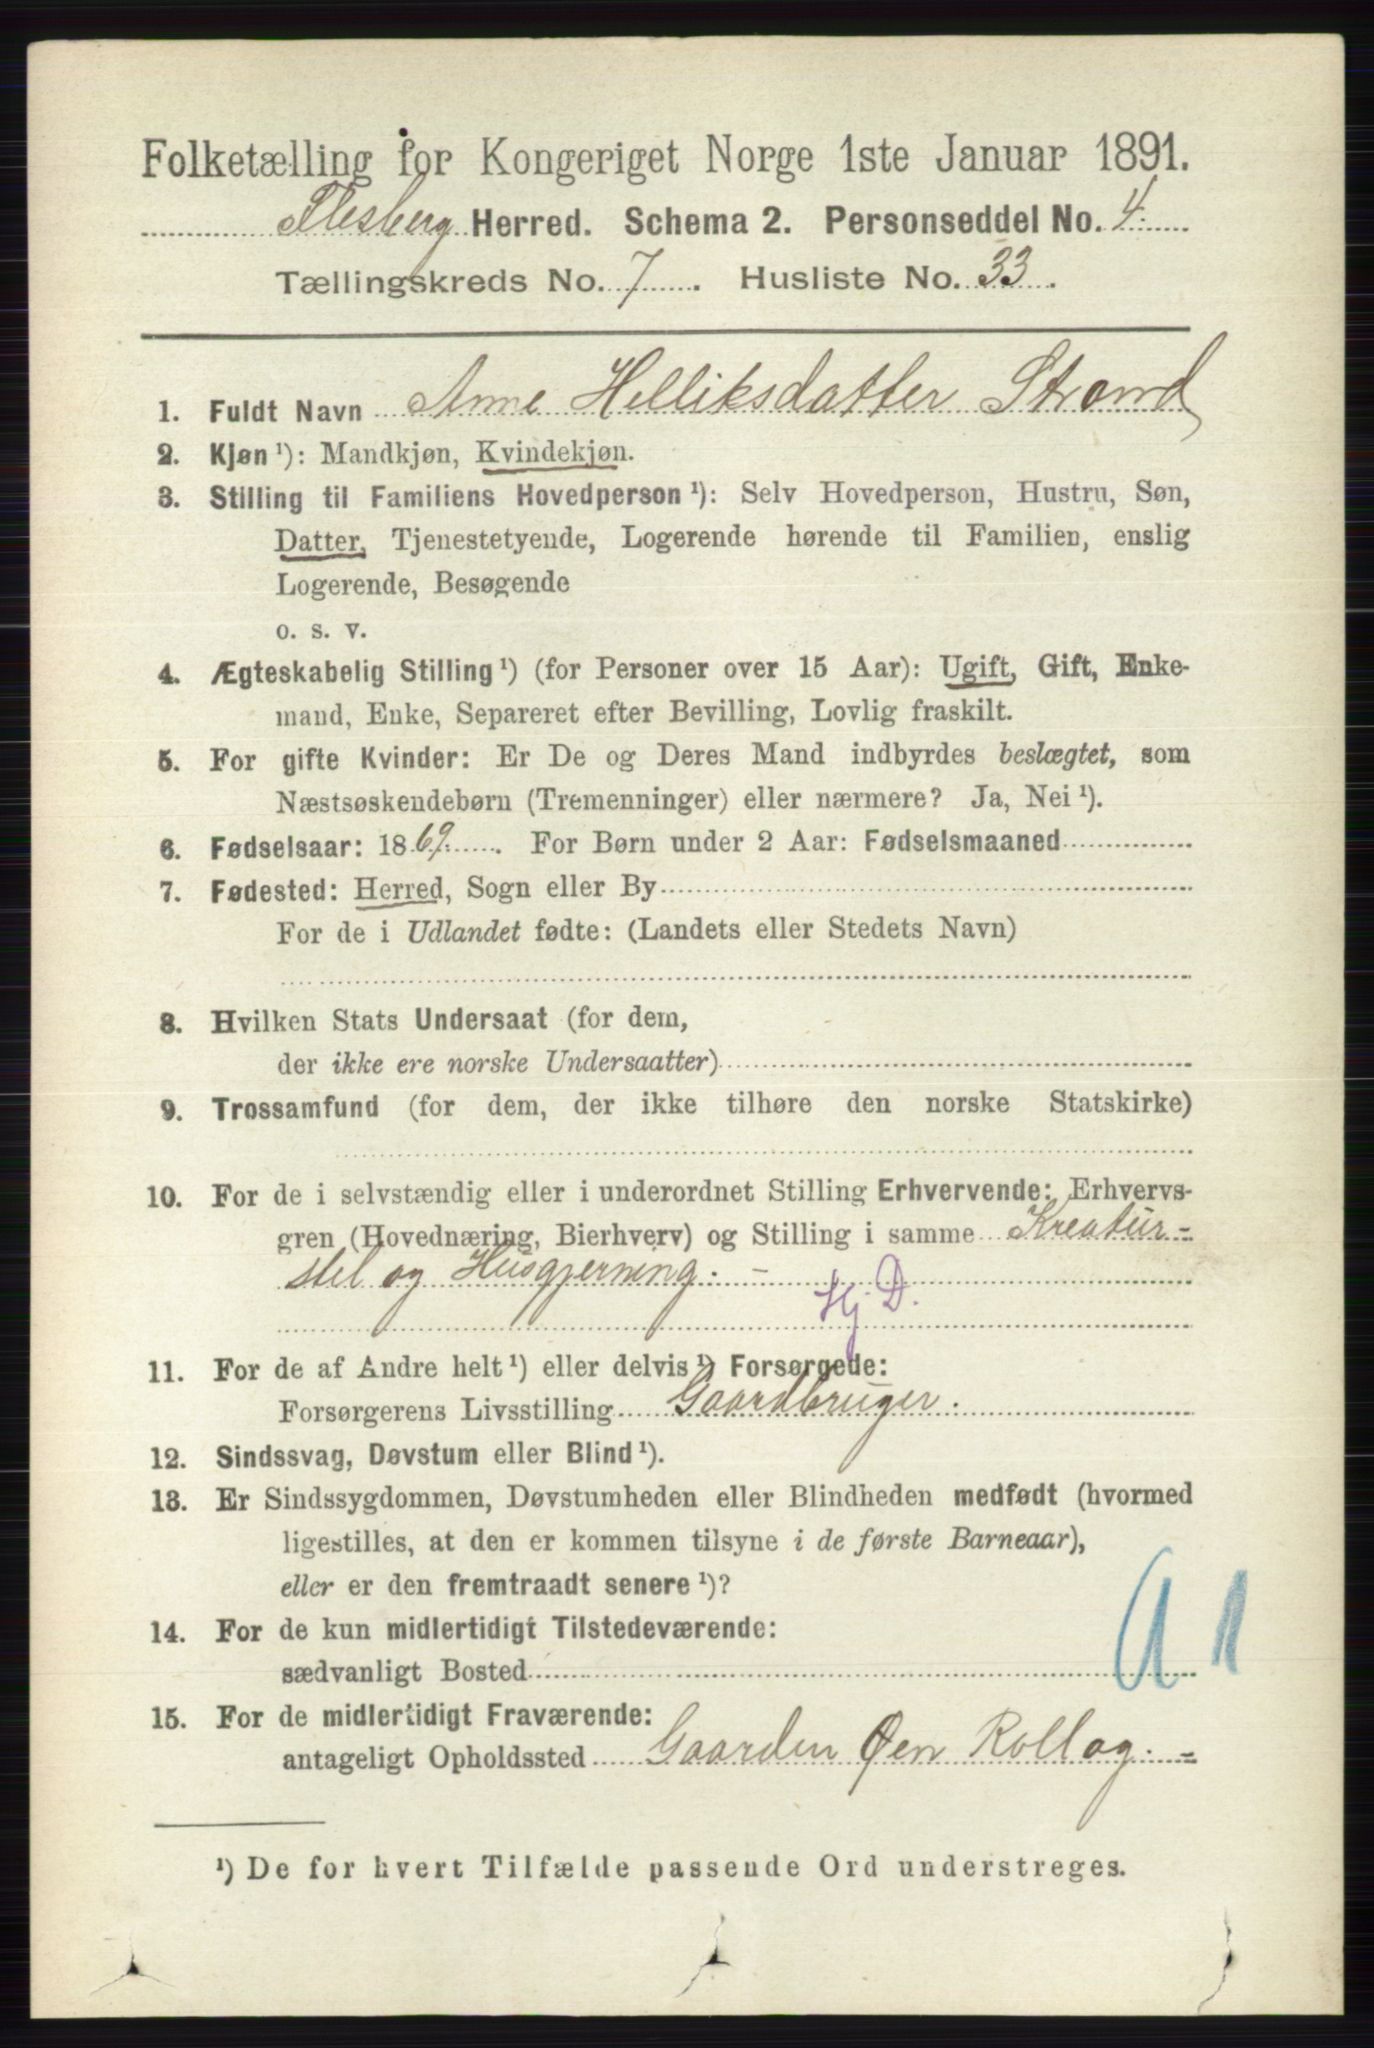 Folketælling for Kongeriget Norge 1ste Januar 1891.
Flesberg Herred. Schema 2. Personseddel No. 4.
Tællingskreds No. 7. Husliste No. 33.
1. Fuldt Navn Anne Helliksdatter Strand
2. Kjøn ¹): Mandkjøn, Kvindekjøn.
3. Stilling til Familiens Hovedperson ¹): Selv Hovedperson, Hustru, Søn,
Datter, Tjenestetyende, Logerende hørende til Familien, enslig
Logerende, Besøgende
o. s. v.
4. Ægteskabelig Stilling ¹) (for Personer over 15 Aar): Ugift, Gift, Enke-
mand, Enke, Separeret efter Bevilling, Lovlig fraskilt.
5. For gifte Kvinder: Er De og Deres Mand indbyrdes beslægtet, som
Næstsøskendebørn (Tremenninger) eller nærmere? Ja, Nei ¹).
6. Fødselsaar: 1869. For Børn under 2 Aar: Fødselsmaaned
7. Fødested: Herred, Sogn eller By
For de i Udlandet fødte: (Landets eller Stedets Navn)
8. Hvilken Stats Undersaat (for dem,
der ikke ere norske Undersaatter)
9. Trossamfund (for dem, der ikke tilhøre den norske Statskirke)
10. For de i selvstændig eller i underordnet Stilling Erhvervende: Erhvervs-
gren (Hovednæring, Bierhverv) og Stilling i samme Kreatur-
stel og Husgjerning. -
Hj D.
11. For de af Andre helt ¹) eller delvis ¹) Forsørgede:
Forsørgerens Livsstilling Gaardbruger.
12. Sindssvag, Døvstum eller Blind ¹).
13. Er Sindssygdommen, Døvstumheden eller Blindheden medfødt (hvormed
ligestilles, at den er kommen tilsyne i de første Barneaar),
eller er den fremtraadt senere ¹)?
14. For de kun midlertidigt Tilstedeværende:
sædvanligt Bosted
a 1
15. For de midlertidigt Fraværende:
antageligt Opholdssted Gaarden Øen Rollag. -
¹) De for hvert Tilfælde passende Ord understreges.